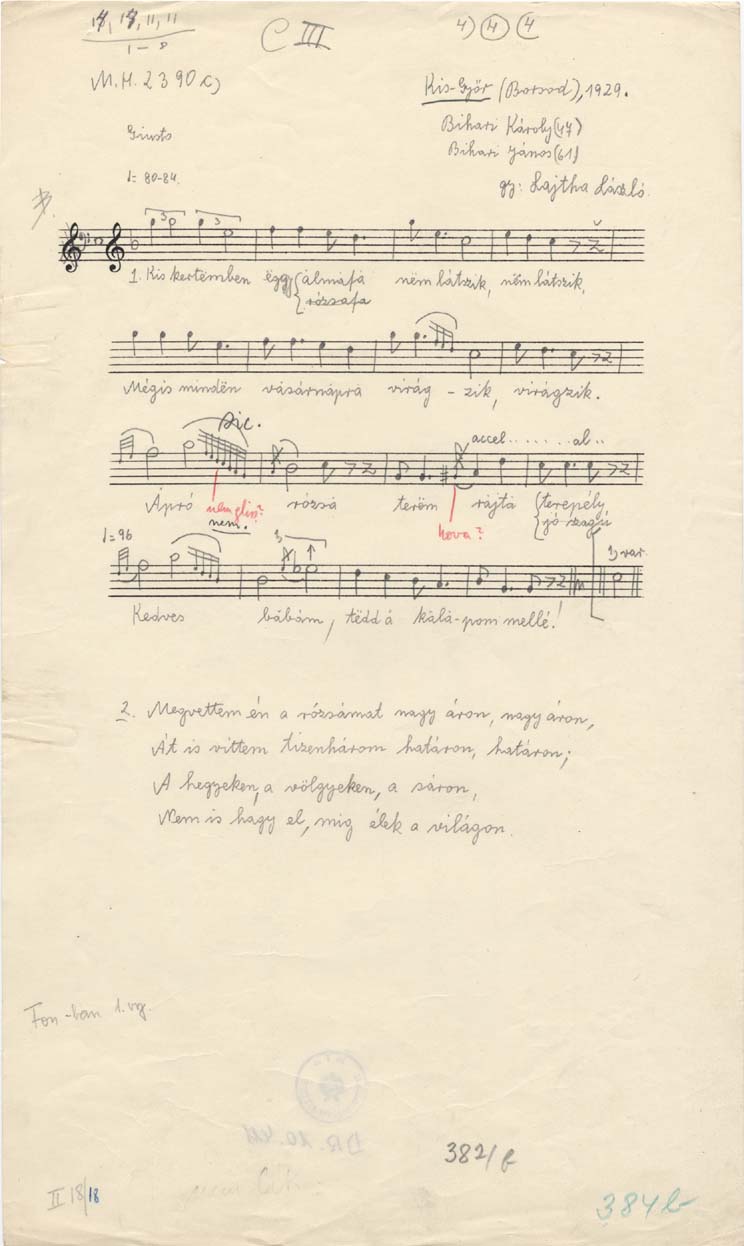 1–8
C III
4) (4) (4
M.H. 2390 c)
Kis-Győr (Borsod), 1929.
Bihari Károly (47)
Bihari János (61)
gy: Lajtha László.
Giusto
= 80-84.
3 3
1. Kis kertemben ëggy álmafa nëm látszik, nëm látszik,
rózsafa
Mégis mindën vásárnápra virág - zik, virágzik.
sic.
accel. . . . . . . al . .
Ápró rózsá teröm rájtá terepély
jó szagú
nem gliss?
nem.
hova?
= 96
1) var.
Kedves bábám, tëdd á kálá-pom mellé!
2. Megvettem én a rózsámat nagy áron, nagy áron,
Át is vittem tizenhárom határon, határon;
A hegyeken, a völgyeken, a sáron,
Nem is hagy el, mig élek a világon.
Fon-ban 1. vsz.
DR. 10.411
382/f
II 18/18
384b